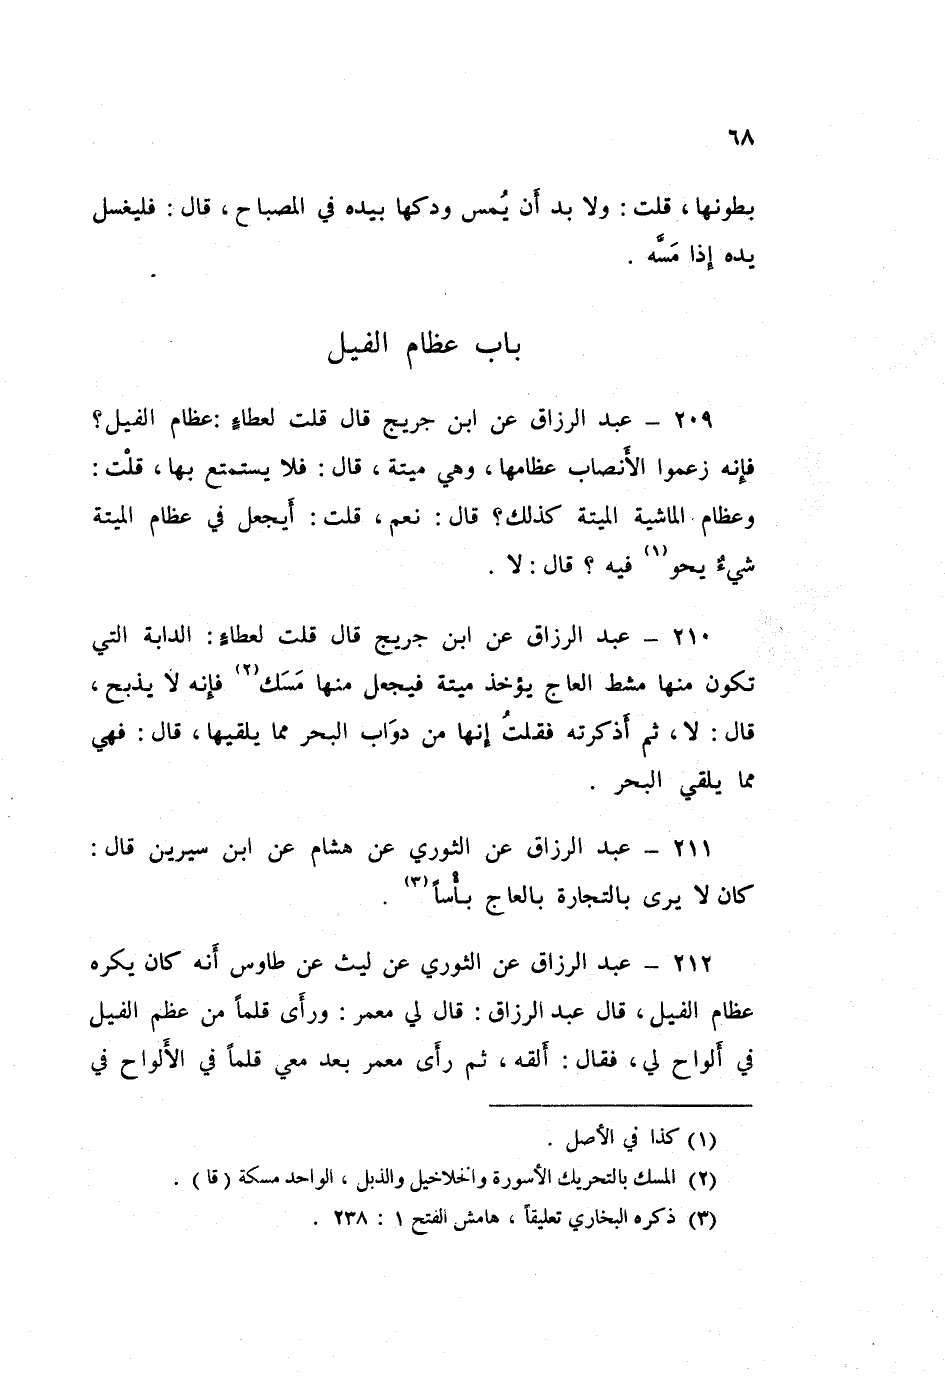 ٦٨
بطونها ، قلت : ولا بد أَن يُمس ودكها بيده في المصباح ، قال : فليغسل
يده إِذا مَسَّه .
باب عظام الفيل
٢٠٩ – عبد الرزاق عن ابن جريج قال قلت لعطاءٍ : عظام الفيل ؟
فإِنه زعموا الأَنصاب عظامها ، وهي ميتة ، قال : فلا يستمتع بها ، قلْت :
وعظام الماشية الميتة كذلك ؟ قال : نعم ، قلت : أَيجعل في عظام الميتة
شيءٌ يحو(١) فيه ؟ قال : لا .
٢١٠ – عبد الرزاق عن ابن جريج قال قلت لعطاءٍ : الدابة التي
تكون منها مشط العاج يؤخذ ميتة فيجعل منها مَسَك(٢) فإِنه لا يذبح ،
قال : لا ، ثم أَذكرته فقلتُ إِنها من دوَاب البحر مما يلقيها ، قال : فهي
مما يلقي البحر .
٢١١ – عبد الرزاق عن الثوري عن هشام عن ابن سيرين قال :
كان لا يرى بالتجارة بالعاج بأْساً(٣) .
٢١٢ – عبد الرزاق عن الثوري عن ليث عن طاوس أَنه كان يكره
عظام الفيل ، قال عبد الرزاق : قال لي معمر : ورأَى قلماً من عظم الفيل
في أَلواح لي ، فقال : أَلقه ، ثم رأَى معمر بعد معي قلماً في الأَلواح في
(١) كذا في الأصل .
(٢) المسك بالتحريك الأسورة والخلاخيل والذبل ، الواحد مسكة ( قا ) .
(٣) ذكره البخاري تعليقاً ، هامش الفتح ١ : ٢٣٨ .